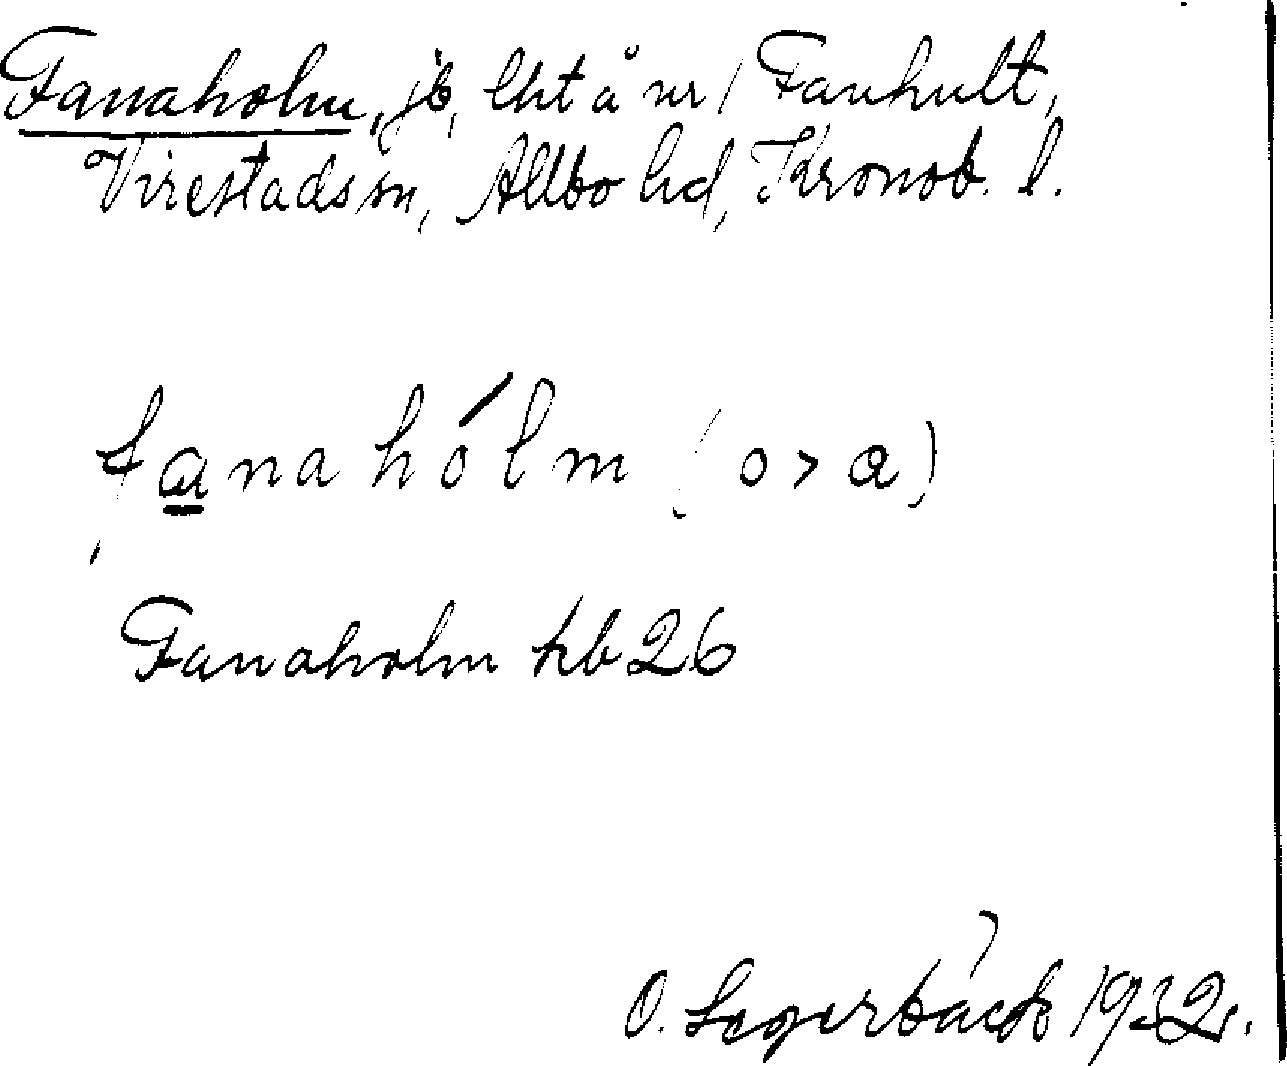 Fanaholm, jb, lht å nr 1 Fanhult,
Virestads sn, Allbo hd, Kronob. l.
fanahólm (o > a)
Fanaholm kb 26
O. Segerbäck 1932.